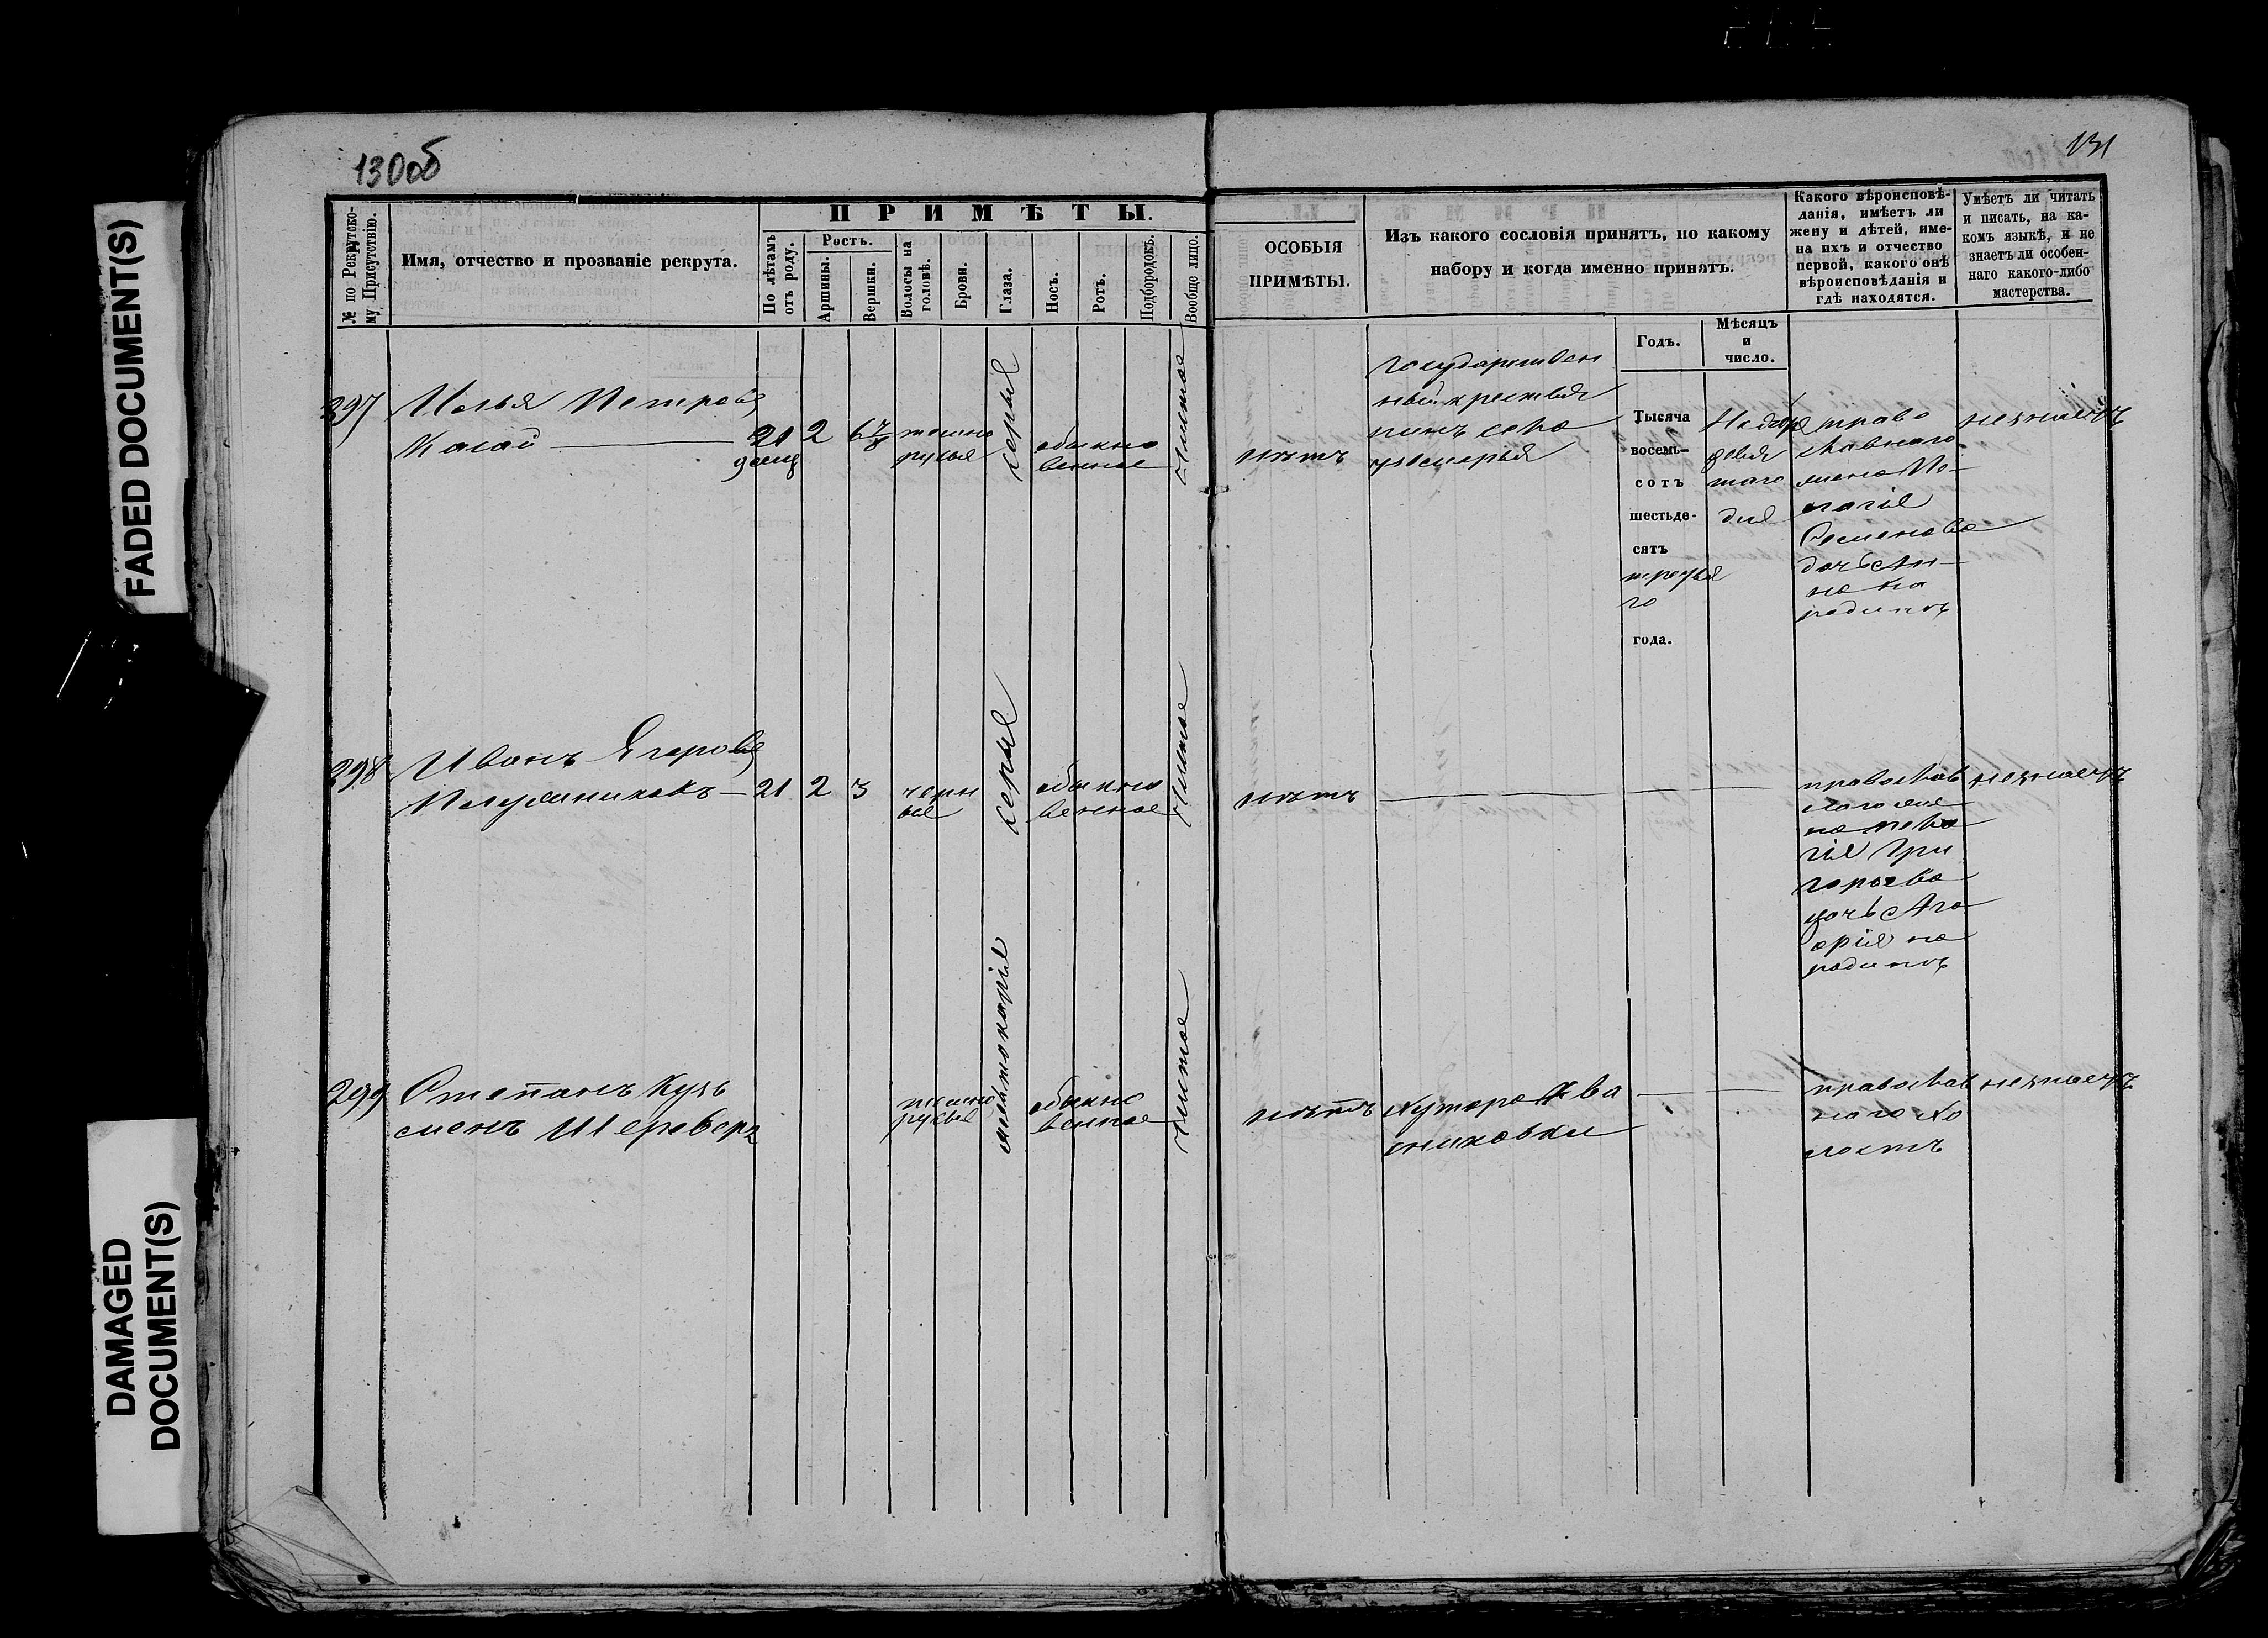 130об
131
FADED DOCUMENT(S)
DAMAGED
DOCUMENT(S)
№ по Рекрутско-
му Присутствію.
Имя, отчество и прозваніе рекрута.
ПРИМѢТЫ.
По лѣтамъ
отъ роду.
Ростъ.
Аршины.
Вершки.
Волосы на
головѣ.
Брови.
Глаза.
Носъ.
Ротъ.
Подбородокъ.
Вообще лицо.
ОСОБЫЯ
ПРИМѢТЫ.
Изъ какого сословія принятъ, по какому
набору и когда именно принятъ.
Годъ.
Мѣсяцъ
и
число.
Какого вѣроисповѣ-
данія, имѣетъ ли
жену и дѣтей, име-
на ихъ и отчество
первой, какого онѣ
вѣроисповѣданія и
гдѣ находятся.
Умѣетъ ли читать
и писать, на ка-
комъ языкѣ, и не
знаетъ ли особен-
наго какого-либо
мастерства.
397
Илья Петровъ
21
2
6⅞
темно
русыя
серыя
обыкно
венное
чистое
нѣтъ
государствен
ный крестья
нинъ села
Тысяча
восемь-
сотъ
шестьде-
сятъ
третья
го
года.
Ноября
дня
право
славнаго
жена По-
лагія
Семенова
дочь Ан-
на на
родинѣ
незнаетъ
398
Иванъ Ягоровъ
21
2
3
черн
ые
серыя
обыкно
венное
чистое
нѣтъ
православ
наго же
на Пела
гія Гри
горьева
дочь Ага
фія на
родинѣ
незнаетъ
299
Степанъ Кузь
менъ Шереверъ
темно
русыя
светлокарія
обыкно
венное
чистое
нѣтъ
хутора Ква
шиковки
православ
наго хо
лостъ
незнаетъ